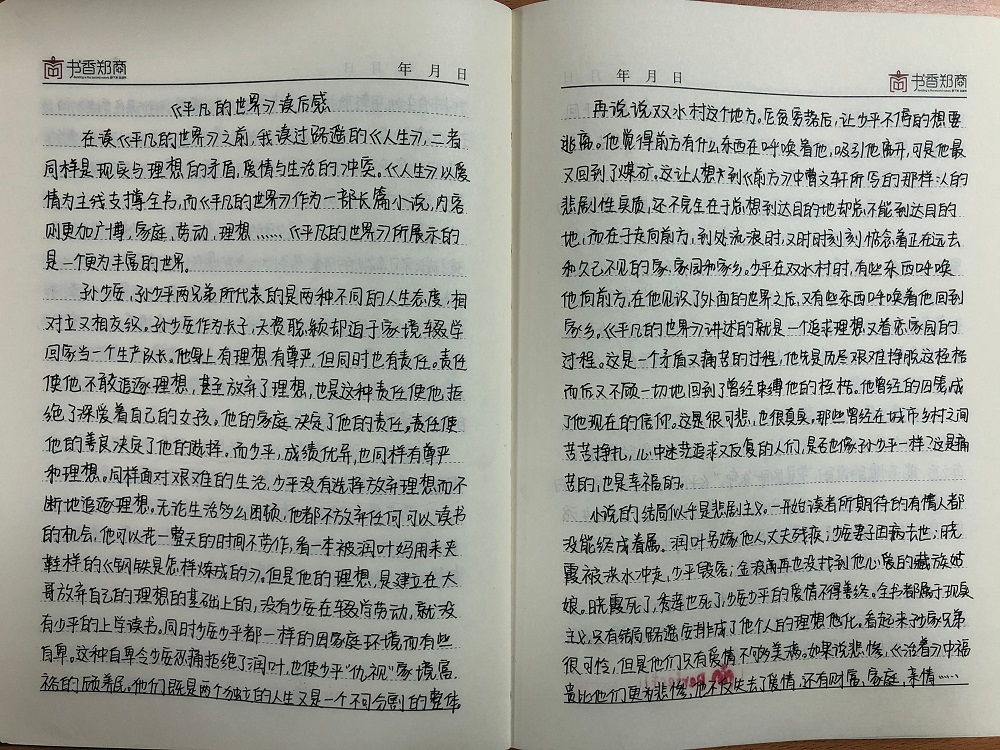 书香郑商
年 月 日
《平凡的世界》读后感
在读《平凡的世界》之前,我读过路遥的《人生》,二者
同样是现实与理想的矛盾,爱情与生活的冲突。《人生》以爱
情为主线支撑全书,而《平凡的世界》作为一部长篇小说,内容
则更加广博,家庭,劳动,理想……《平凡的世界》所展示的
是一个更为丰富的世界。
孙少安,孙少平两兄弟所代表的是两种不同的人生态度,相
对立又相交织。孙少安作为长子,天资聪颖却迫于家境辍学
回家当一个生产队长。他身上有理想有尊严,但同时也有责任。责任
使他不敢追逐理想,甚至放弃了理想,也是这种责任使他拒
绝了深爱着自己的女孩。他的家庭决定了他的责任。责任使
他的善良决定了他的选择。而少平,成绩优异,也同样有尊严
和理想。同样面对艰难的生活,少平没有选择放弃理想而不
断地追逐理想。无论生活多么困顿,他都不放弃任何可以读书
的机会,他可以花一整天的时间不劳作,看一本被润叶妈用来夹
鞋样的《钢铁是怎样炼成的》。但是他的理想,是建立在大
哥放弃自己的理想的基础上的,没有少安在辍学劳动,就没
有少平的上学读书。同时少安少平都一样的因家庭环境而有些
自卑。这种自卑令少安忍痛拒绝了润叶,也使少平“仇视”家境富
裕的顾养民。他们既是两个独立的人生又是一个不可分割的整体
年 月 日
书香郑商
再说说双水村这个地方。它贫穷落后,让少平不得的想要
逃离。他觉得前方有什么东西在呼唤着他,吸引他离开,可是他最
又回到了煤矿。这让人想到《前方》中曹文轩所写的那样:人的
悲剧性实质,还不完全在于总想到达目的地却总不能到达目的
地,而在于走向前方,到处流浪时,又时时刻刻惦念着正在远去
和久已不见的家、家园和家乡。少平在双水村时,有些东西呼唤
他向前方,在他见识了外面的世界之后,又有些东西呼唤着他回到
家乡。《平凡的世界》讲述的就是一个追求理想又着恋家园的
过程。这是一个矛盾又痛苦的过程,他先是历尽艰难挣脱这桎梏
而后又不顾一切地回到了曾经束缚他的桎梏。他曾经的囚笼,成
了他现在的信仰。这是很可悲,也很真实。那些曾经在城市乡村之间
苦苦挣扎,心中迷茫追求又反复的人们,是否也像孙少平一样?这是痛
苦的,也是幸福的。
小说的结局似乎是悲剧主义。一开始读者所期待的有情人都
没能终成眷属。润叶另嫁他人丈夫残疾;少安妻子因病去世;晓
霞被洪水冲走,少平毁容;金波再也没找到他心爱的藏族姑
娘。晓霞死了,秀莲也死了,少安少平的爱情不得善终。全书都属于现实
主义,只有结局路遥安排成了他个人的理想悲化。看起来孙家兄弟
很可怜,但是他们只有爱情不够美满。如果说悲惨,《活着》中福
贵比他们更为悲惨,他不仅失去了爱情,还有财富,家庭,亲情……